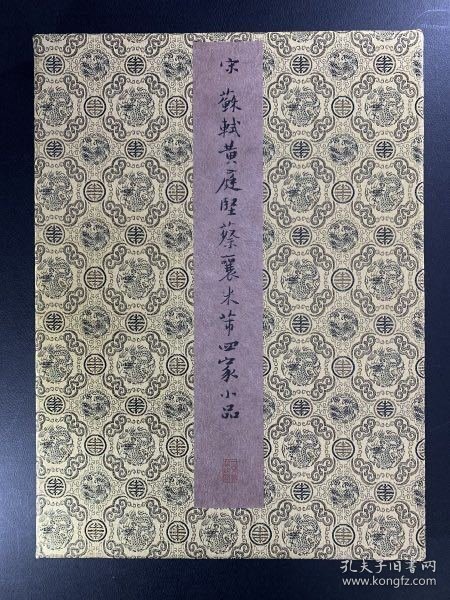 宋蘇軾黄庭堅蔡襄米芾四家小品
孔夫子旧书网
www.kongfz.com